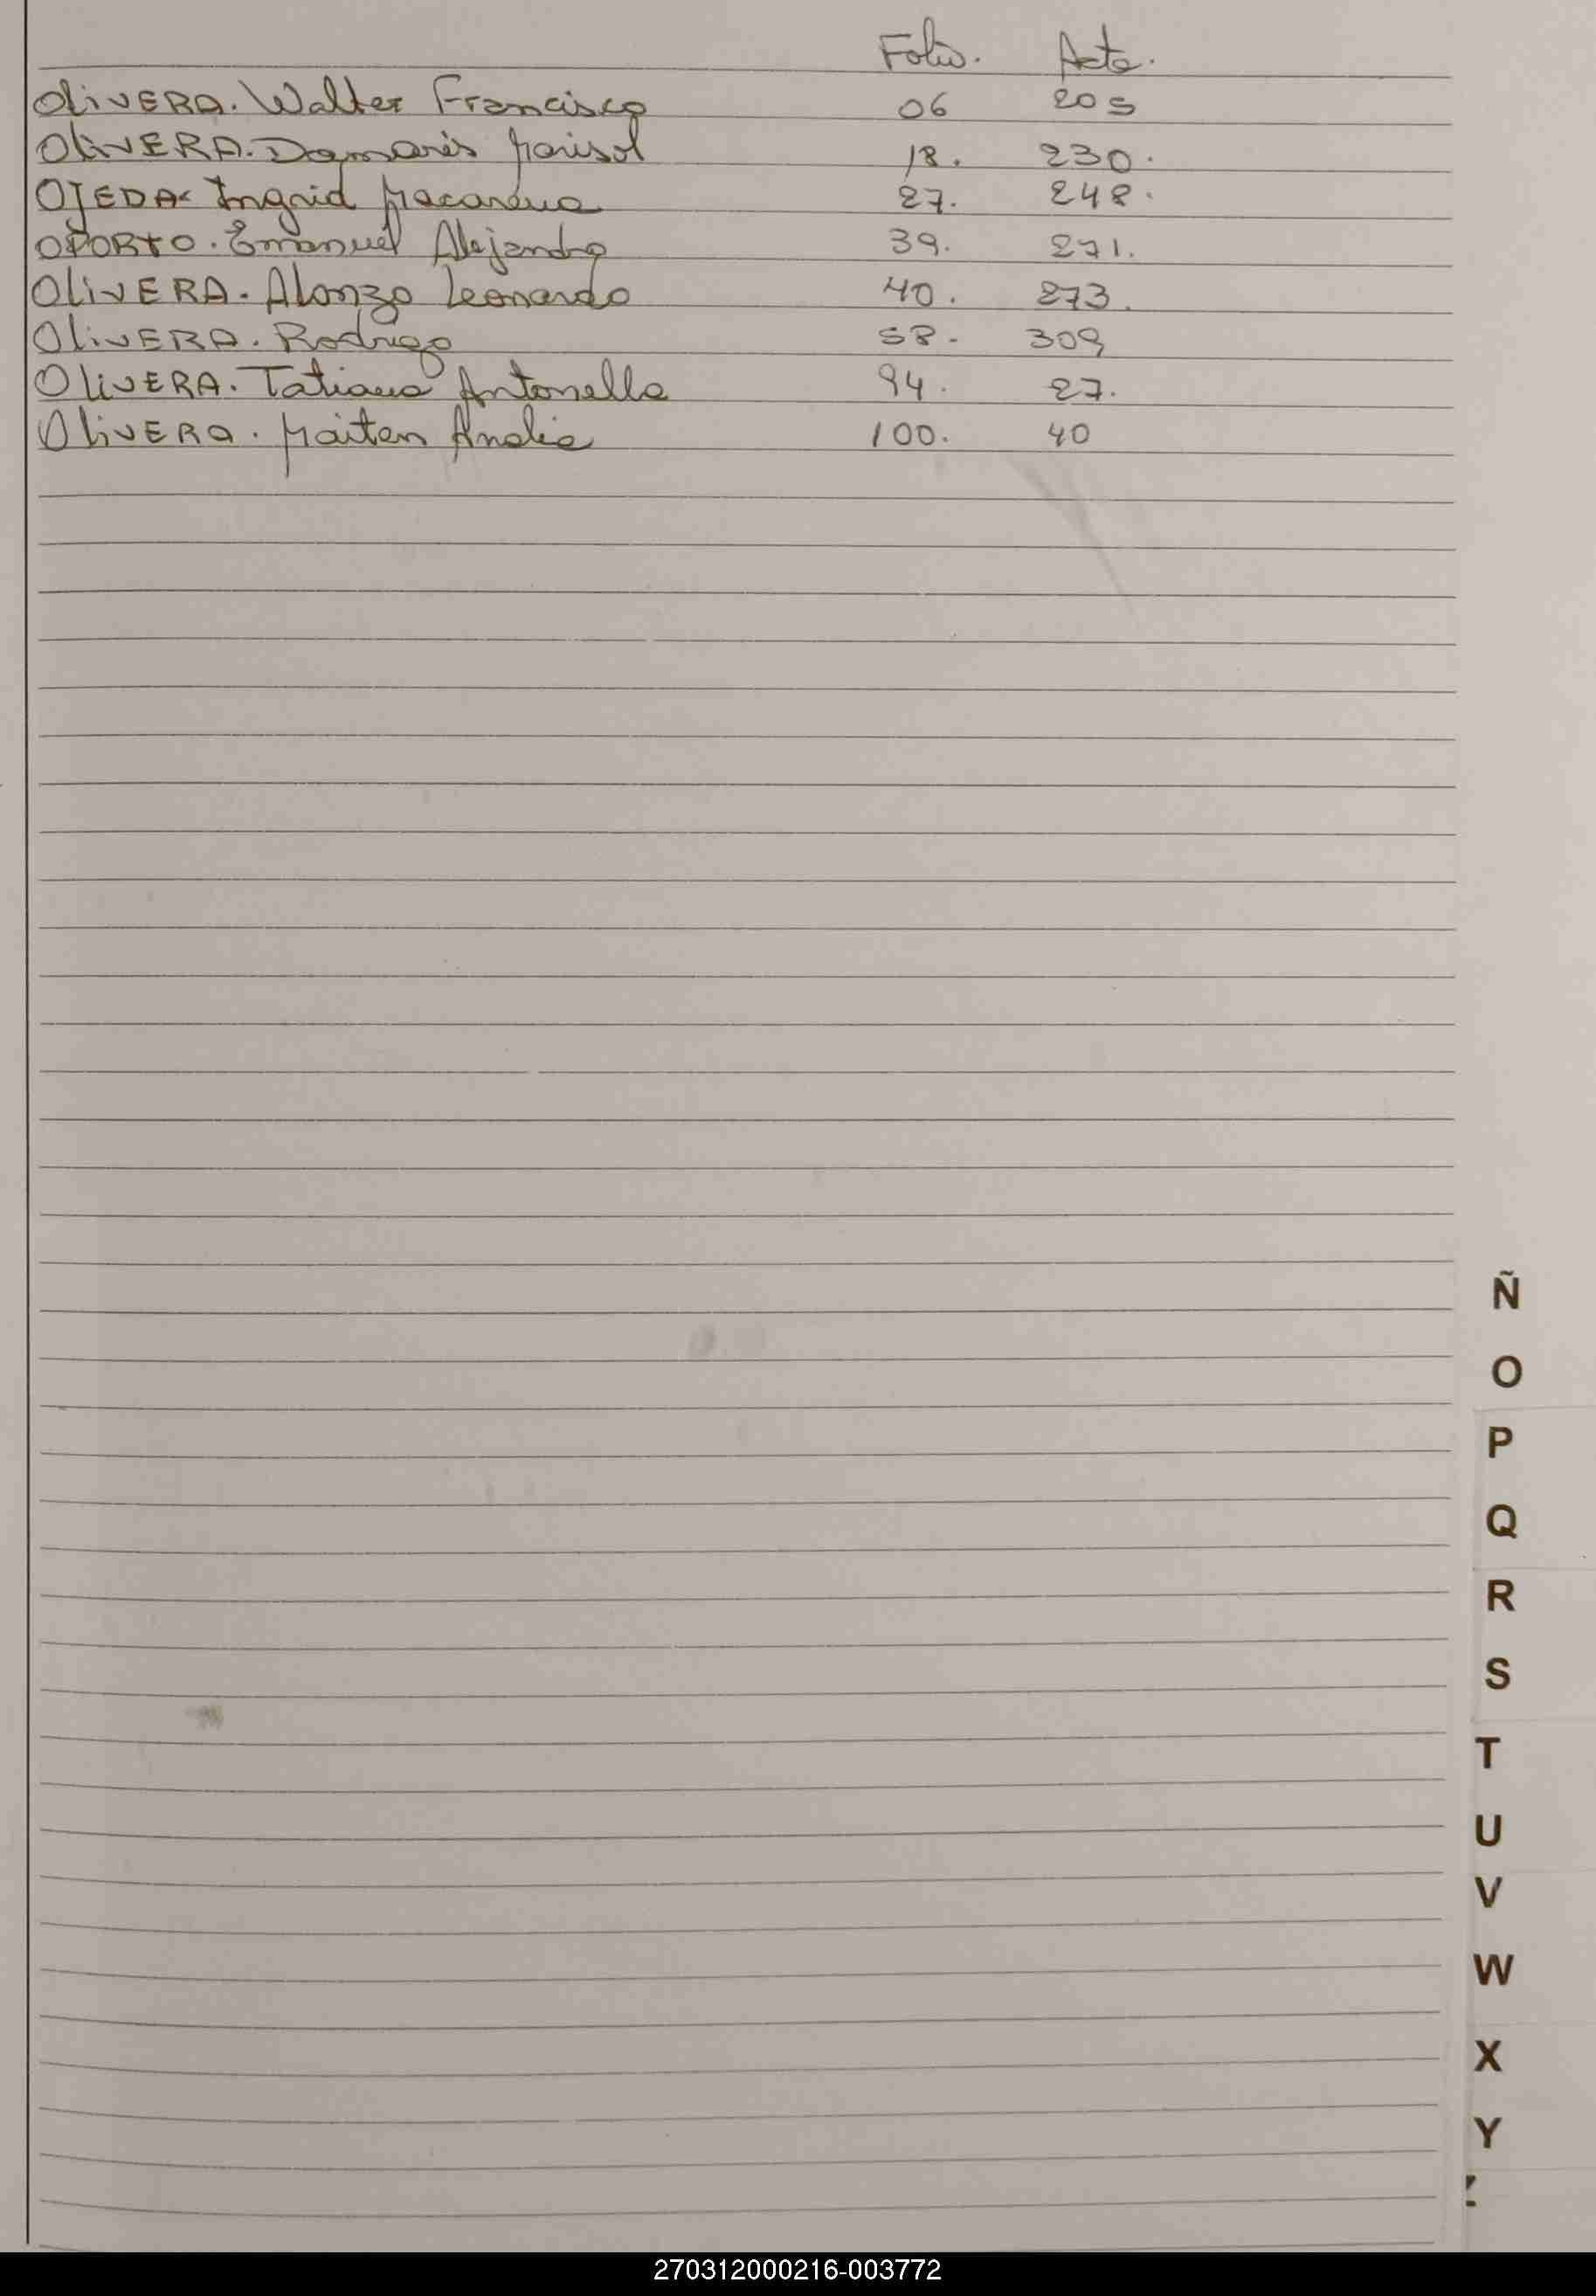 Folio. Acta.
OliVERA. Walter Francisco 06 205
OliVERA. Damaris Marisol 18. 230.
OJEDA Ingrid Macarena 27. 248.
OPORTO. Emanuel Alejandro 39. 271.
OliVERA. Alonzo Leonardo 40. 273.
OliVERA. Rodrigo 58. 309
OliVERA. Tatiana Antonella 94. 27.
OliVERA. Maiten Analia 100. 40
Ñ
O
P
Q
R
S
T
U
V
W
X
Y
270312000216-003772